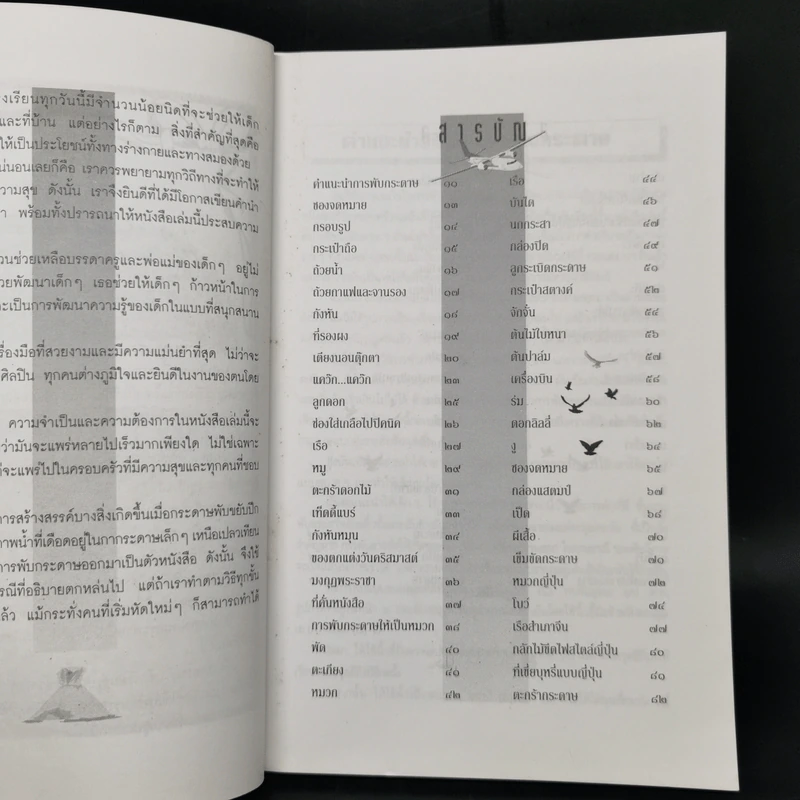 งเรียนทุกวันนี้มีจำนวนน้อยนิดที่จะช่วยให้เด็ก
และที่บ้าน แต่อย่างไรก็ตาม สิ่งที่สำคัญที่สุดคือ
ให้เป็นประโยชน์ทั้งทางร่างกายและทางสมองด้วย
น่นอนเลยก็คือ เราควรพยายามทุกวิถีทางที่จะทำให้
ความสุข ดังนั้น เราจึงยินดีที่ได้มีโอกาสเขียนคำนำ
า พร้อมทั้งปรารถนาให้หนังสือเล่มนี้ประสบความ
วนช่วยเหลือบรรดาครูและพ่อแม่ของเด็กๆ อยู่ไม่
วยพัฒนาเด็กๆ เธอช่วยให้เด็กๆ ก้าวหน้าในการ
ะเป็นการพัฒนาความรู้ของเด็กในแบบที่สนุกสนาน
รื่องมือที่สวยงามและมีความแม่นยำที่สุด ไม่ว่าจะ
ศิลปิน ทุกคนต่างภูมิใจและยินดีในงานของตนโดย
ความจำเป็นและความต้องการในหนังสือเล่มนี้จะ
ว่ามันจะแพร่หลายไปเร็วมากเพียงใด ไม่ใช่เฉพาะ
ก็จะแพร่ไปในครอบครัวที่มีความสุขและทุกคนที่ชอบ
การสร้างสรรค์บางสิ่งเกิดขึ้นเมื่อกระดาษพับขยับปีก
าพน้ำที่เดือดอยู่ในกากระดาษเล็กๆ เหนือเปลวเทียน
การพับกระดาษออกมาเป็นตัวหนังสือ ดังนั้น จึงใช้
รณีที่อธิบายตกหล่นไป แต่ถ้าเราทำตามวิธีทุกขั้น
ล้ว แม้กระทั่งคนที่เริ่มหัดใหม่ๆ ก็สามารถทำได้
สารบัญ
คำแนะนำการพับกระดาษ ๑๐
ซองจดหมาย ๑๓
กรอบรูป ๑๔
กระเป๋าถือ ๑๕
ถ้วยน้ำ ๑๖
ถ้วยกาแฟและจานรอง ๑๗
กังหัน ๑๘
ที่รองผง ๑๙
เตียงนอนตุ๊กตา ๒๐
แคว๊ก...แคว๊ก ๒๓
ลูกดอก ๒๕
ช่องใส่เกลือไปปิคนิค ๒๖
เรือ ๒๗
หมู ๒๙
ตะกร้าดอกไม้ ๓๑
เท็ดดี้แบร์ ๓๓
กังหันหมุน ๓๔
ของตกแต่งวันคริสมาสต์ ๓๕
มงกุฎพระราชา ๓๖
ที่คั่นหนังสือ ๓๗
การพับกระดาษให้เป็นหมวก ๓๘
พัด ๔๐
ตะเกียง ๔๑
หมวก ๔๒
เรือ ๔๔
บันได ๔๖
นกกระสา ๔๗
กล่องปิด ๔๙
ลูกระเบิดกระดาษ ๕๑
กระเป๋าสตางค์ ๕๒
จักจั่น ๕๔
ต้นไม้ใบหนา ๕๖
ต้นปาล์ม ๕๗
เครื่องบิน ๕๘
ร่ม ๖๐
ดอกลิลลี่ ๖๒
งู ๖๔
ซองจดหมาย ๖๕
กล่องแสตมป์ ๖๗
เป็ด ๖๘
ผีเสื้อ ๗๐
เข็มขัดกระดาษ ๗๑
หมวกญี่ปุ่น ๗๒
โบว์ ๗๔
เรือสำเภาจีน ๗๗
กลักไม้ขีดไฟสไตล์ญี่ปุ่น ๘๐
ที่เขี่ยบุหรี่แบบญี่ปุ่น ๘๑
ตะกร้ากระดาษ ๘๒